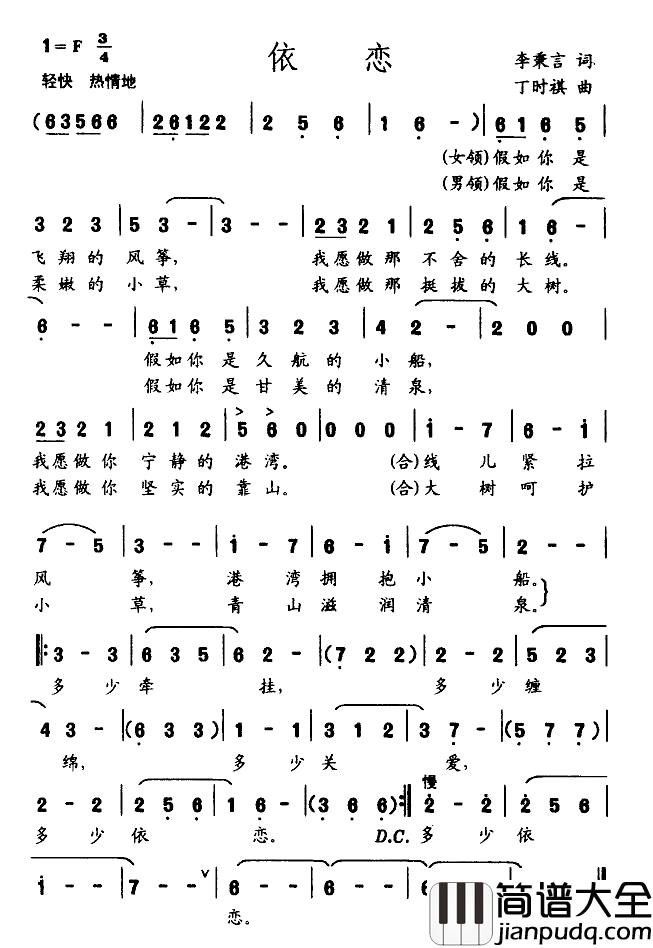 1=F 3/4
依 恋
李秉言 词
轻快 热情地
丁时祺 曲
(63566 | 26122 | 2 5 6 | 1 6 - ) | 616 5 |
(女领)假如你是
(男领)假如你是
3 2 3 | 5 3 - | 3 - - | 23 2 1 | 2 5 6 | 1 6 - |
飞翔的风筝, 我愿做那不舍的长线。
柔嫩的小草, 我愿做那挺拔的大树。
6 - - | 616 5 | 3 2 3 | 4 2 - | 2 0 0 |
假如你是久航的小船,
假如你是甘美的清泉,
23 2 1 | 2 1 2 | 5 6 0 | 0 0 0 | 1 - 7 | 6 - 1 |
我愿做你宁静的港湾。 (合)线儿紧拉
我愿做你坚实的靠山。 (合)大树呵护
7 - 5 | 3 - - | 1 - 7 | 6 - 1 | 5 - 5 | 2 - - |
风筝, 港湾拥抱小船。
小草, 青山滋润清泉。
3 - 3 | 6 3 5 | 6 2 - | (7 2 2) | 2 - 2 | 5 2 3 |
多少牵挂, 多少缠
4 3 - | (6 3 3) | 1 - 1 | 3 1 2 | 3 7 - | (5 7 7) |
绵, 多少关爱,
慢
2 - 2 | 2 5 6 | 1 6 - | (3 6 6) | 2 - 2 | 2 - 2 |
多少依恋。 D.C. 多少依
1 - - | 7 - - | 6 - - | 6 - - | 6
恋。
简谱大全
jianpudq.com